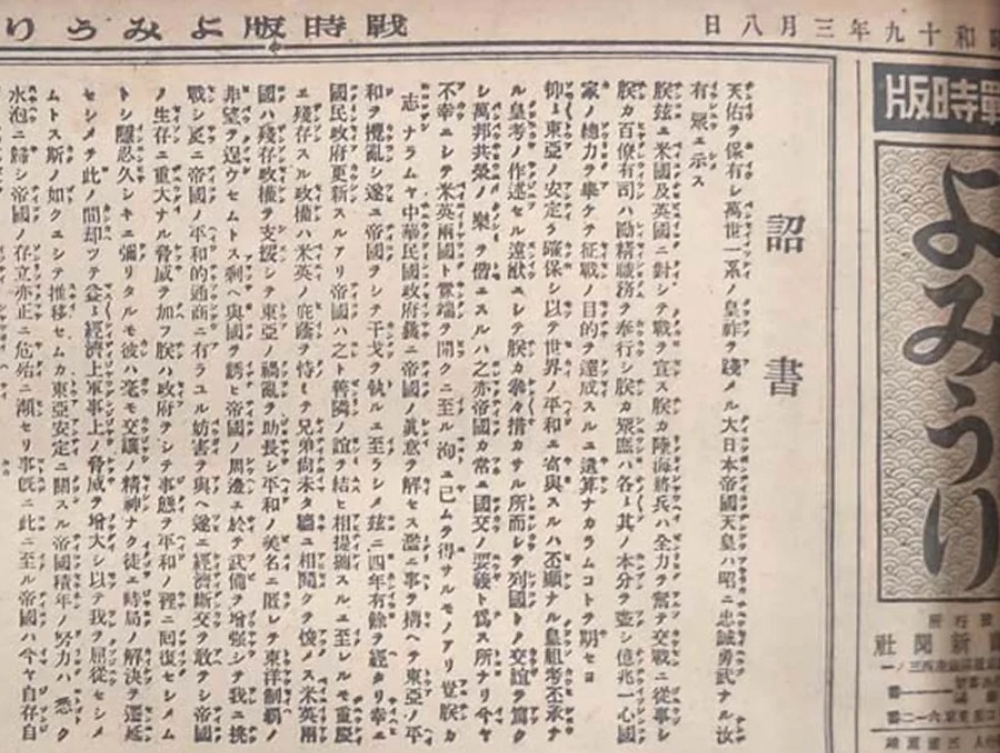 昭和十九年三月八日
戰時版よみうり
戰時版
よみうり
詔書
天佑ヲ保有シ萬世一系ノ皇祚ヲ踐メル大日本帝國天皇ハ昭ニ忠誠勇武ナル汝
有眾ニ示ス
朕茲ニ米國及英國ニ對シテ戰ヲ宣ス朕カ陸海將兵ハ全力ヲ奮テ交戰ニ從事シ
朕カ百僚有司ハ勵精職務ヲ奉行シ朕カ眾庶ハ各〻其ノ本分ヲ盡シ億兆一心國
家ノ總力ヲ擧ケテ征戰ノ目的ヲ達成スルニ遺算ナカラムコトヲ期セヨ
抑〻東亞ノ安定ヲ確保シ以テ世界ノ平和ニ寄與スルハ丕顯ナル皇祖考丕承ナ
ル皇考ノ作述セル遠猷ニシテ朕カ拳々措カサル所而シテ列國トノ交誼ヲ篤ク
シ萬邦共榮ノ樂ヲ偕ニスルハ之亦帝國カ常ニ國交ノ要義ト爲ス所ナリ今ヤ
不幸ニシテ米英兩國ト釁端ヲ開クニ至ル洵ニ已ムヲ得サルモノアリ豈朕カ
志ナラムヤ中華民國政府曩ニ帝國ノ眞意ヲ解セス濫ニ事ヲ構ヘテ東亞ノ平
和ヲ攪亂シ遂ニ帝國ヲシテ干戈ヲ執ルニ至ラシメ茲ニ四年有餘ヲ經タリ幸ニ
國民政府更新スルアリ帝國ハ之ト善隣ノ誼ヲ結ヒ相提攜スルニ至レルモ重慶
ニ殘存スル政權ハ米英ノ庇蔭ヲ恃ミテ兄弟尙未タ牆ニ相鬩クヲ悛メス米英兩
國ハ殘存政權ヲ支援シテ東亞ノ禍亂ヲ助長シ平和ノ美名ニ匿レテ東洋制覇ノ
非望ヲ逞ウセムトス剩ヘ與國ヲ誘ヒ帝國ノ周邊ニ於テ武備ヲ增强シテ我ニ挑
戰シ更ニ帝國ノ平和的通商ニ有ラユル妨害ヲ與ヘ遂ニ經濟斷交ヲ敢テシ帝國
ノ生存ニ重大ナル脅威ヲ加フ朕ハ政府ヲシテ事態ヲ平和ノ裡ニ囘復セシメム
トシ隱忍久シキニ彌リタルモ彼ハ毫モ交讓ノ精神ナク徒ニ時局ノ解決ヲ遷延
セシメテ此ノ間却ツテ益〻經濟上軍事上ノ脅威ヲ增大シ以テ我ヲ屈從セシメ
ムトス斯ノ如クニシテ推移セムカ東亞安定ニ關スル帝國積年ノ努力ハ悉ク
水泡ニ歸シ帝國ノ存立亦正ニ危殆ニ瀕セリ事既ニ此ニ至ル帝國ハ今ヤ自存自